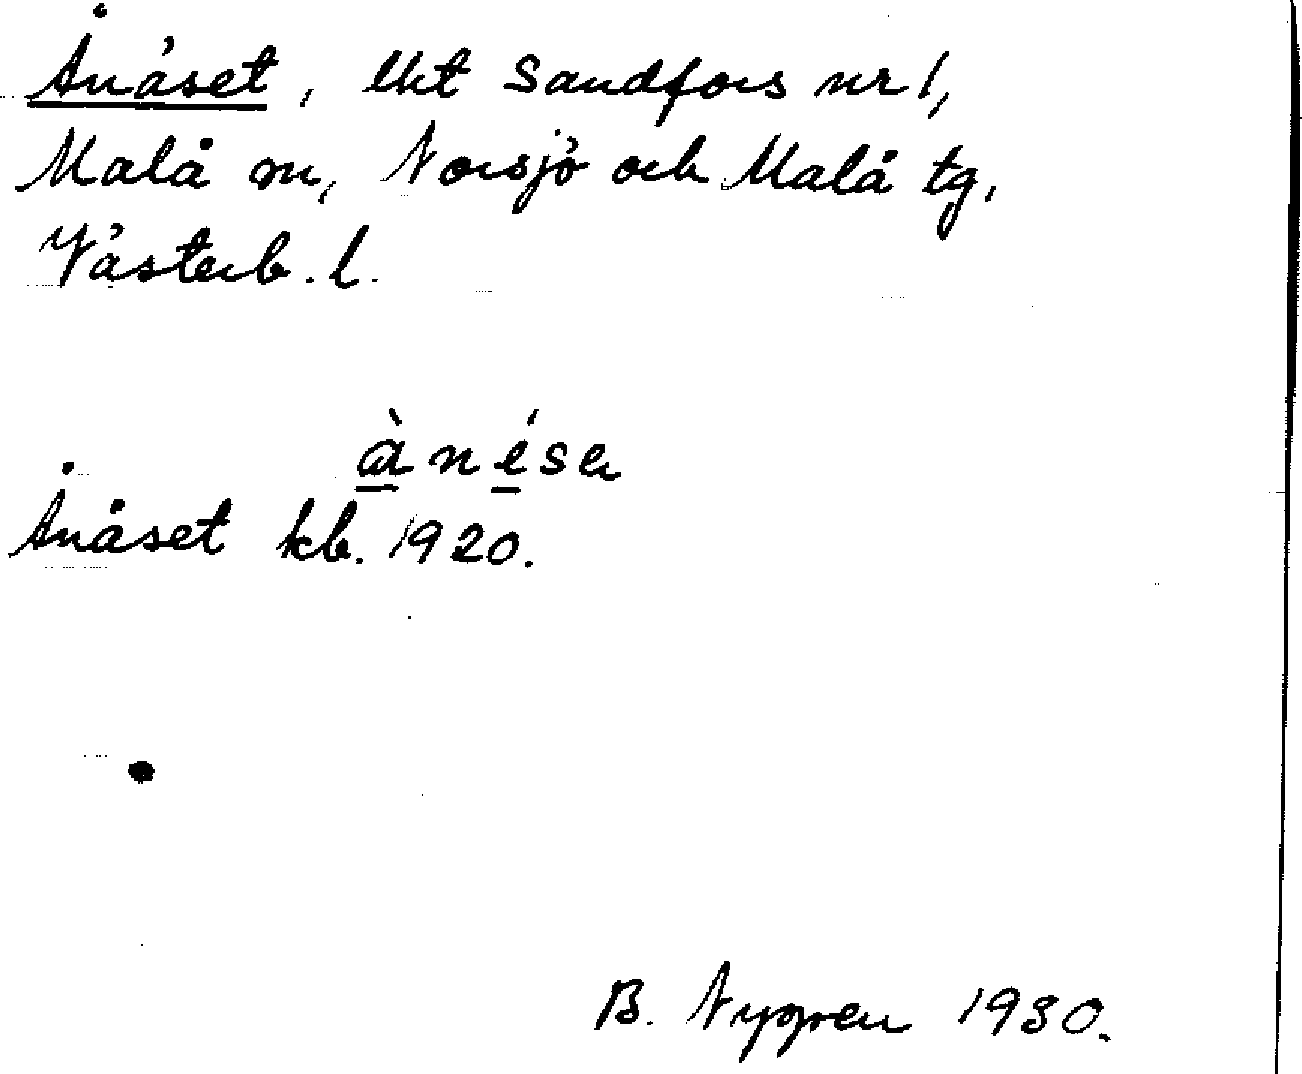 Ånäset, lht Sandfors nr 1,
Malå sn, Norsjö och Malå tg,
Västerb. l.
ànése
Ånäset kb. 1920.
B. Nygren 1930.